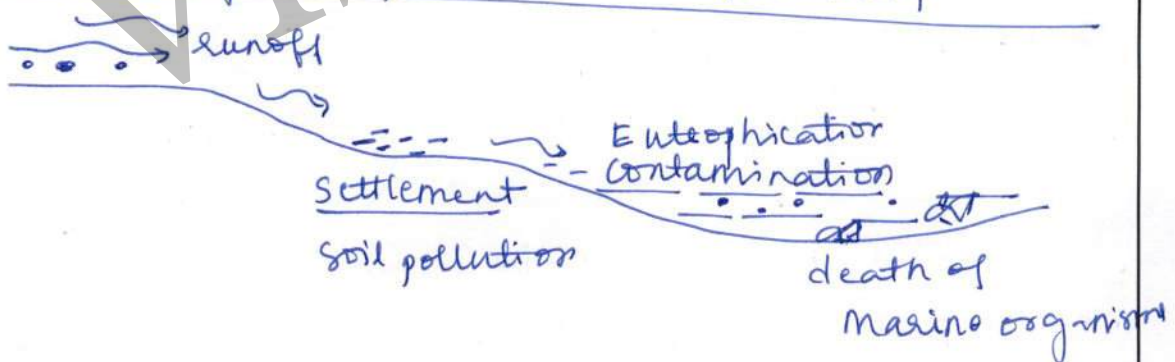 runoff
Euteophication
contamination
settlement
soil pollution
death of
marine organism